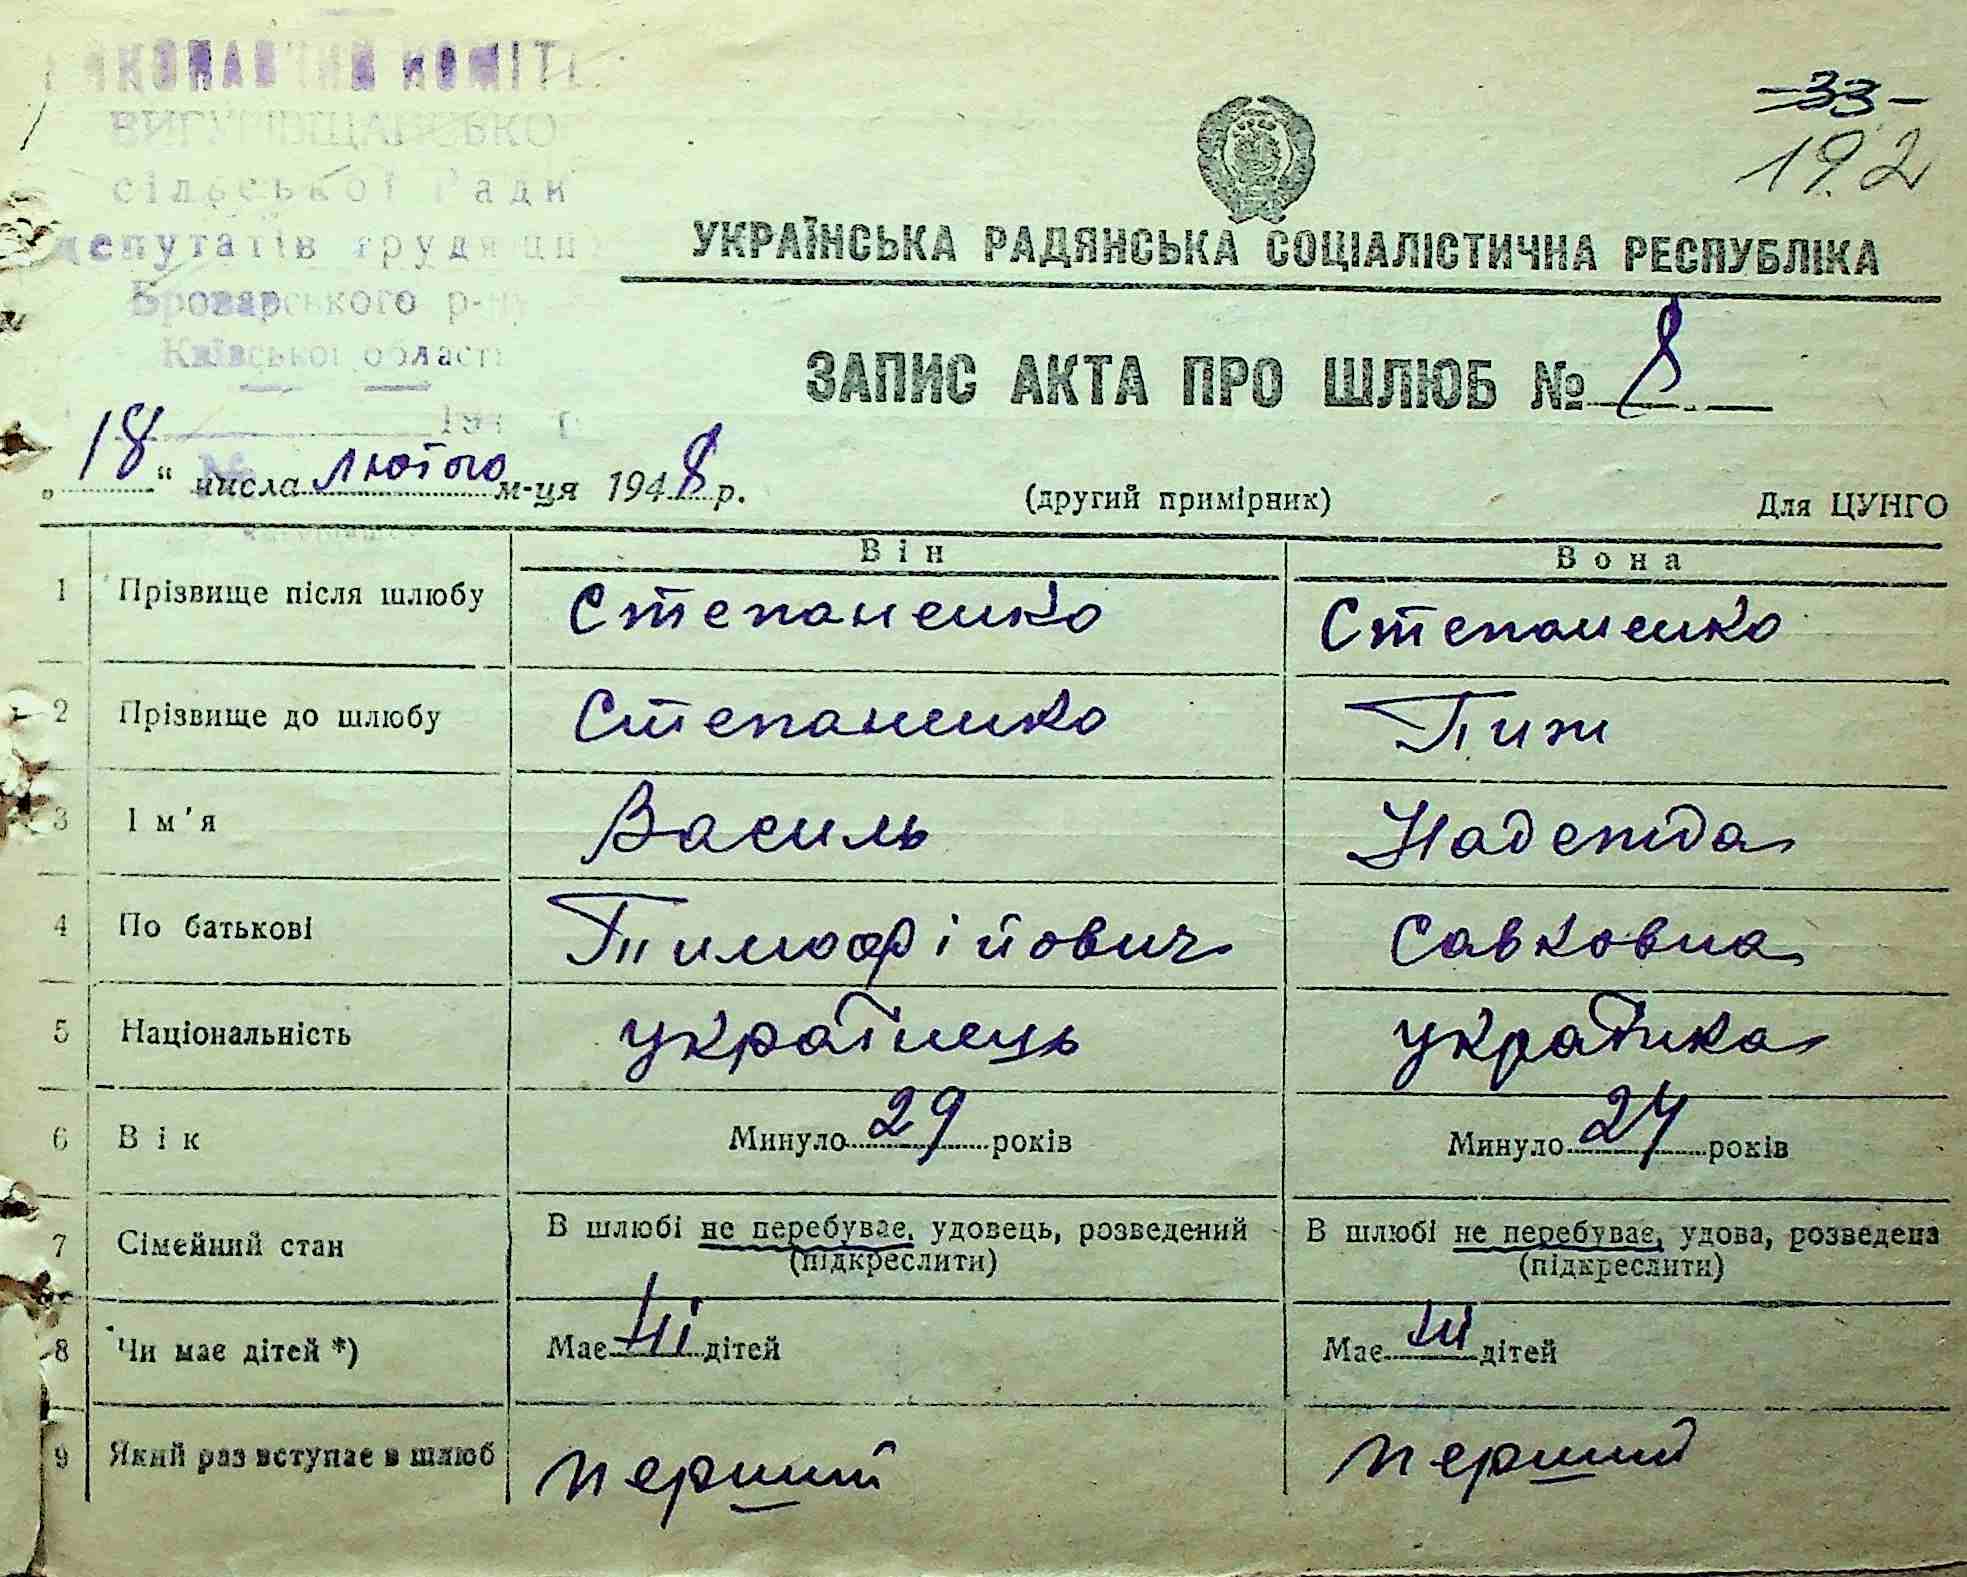 ВИКОНАВЧИЙ КОМІТЕ
сільської Ради
депутатів трудящих
Броварського р-ну
Київської області
-33-
192
УКРАЇНСЬКА РАДЯНСЬКА СОЦІАЛІСТИЧНА РЕСПУБЛІКА
ЗАПИС АКТА ПРО ШЛЮБ № 8
„18“ числа лютого м-ця 1948 р. (другий примірник) Для ЦУНГО
Він Вона
1 Прізвище після шлюбу Степаненко Степаненко
2 Прізвище до шлюбу Степаненко Пиж
3 Ім'я Василь Надежда
4 По батькові Тимофійович Савковна
5 Національність українець українка
6 Вік Минуло 29 років Минуло 24 років
7 Сімейний стан В шлюбі не перебуває, удовець, розведений В шлюбі не перебуває, удова, розведена
(підкреслити) (підкреслити)
8 Чи має дітей *) Має ні дітей Має ні дітей
9 Який раз вступає в шлюб перший перший